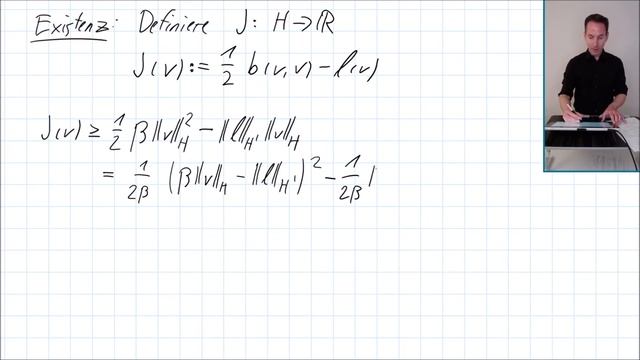 Existenz: Definiere J: H → ℝ
J(v) := 1/2 b(v,v) − l(v)
J(v) ≥ 1/2 β ‖v‖_H^2 − ‖l‖_H' ‖v‖_H
= 1/2β (β‖v‖_H − ‖l‖_H')^2 − 1/2β |